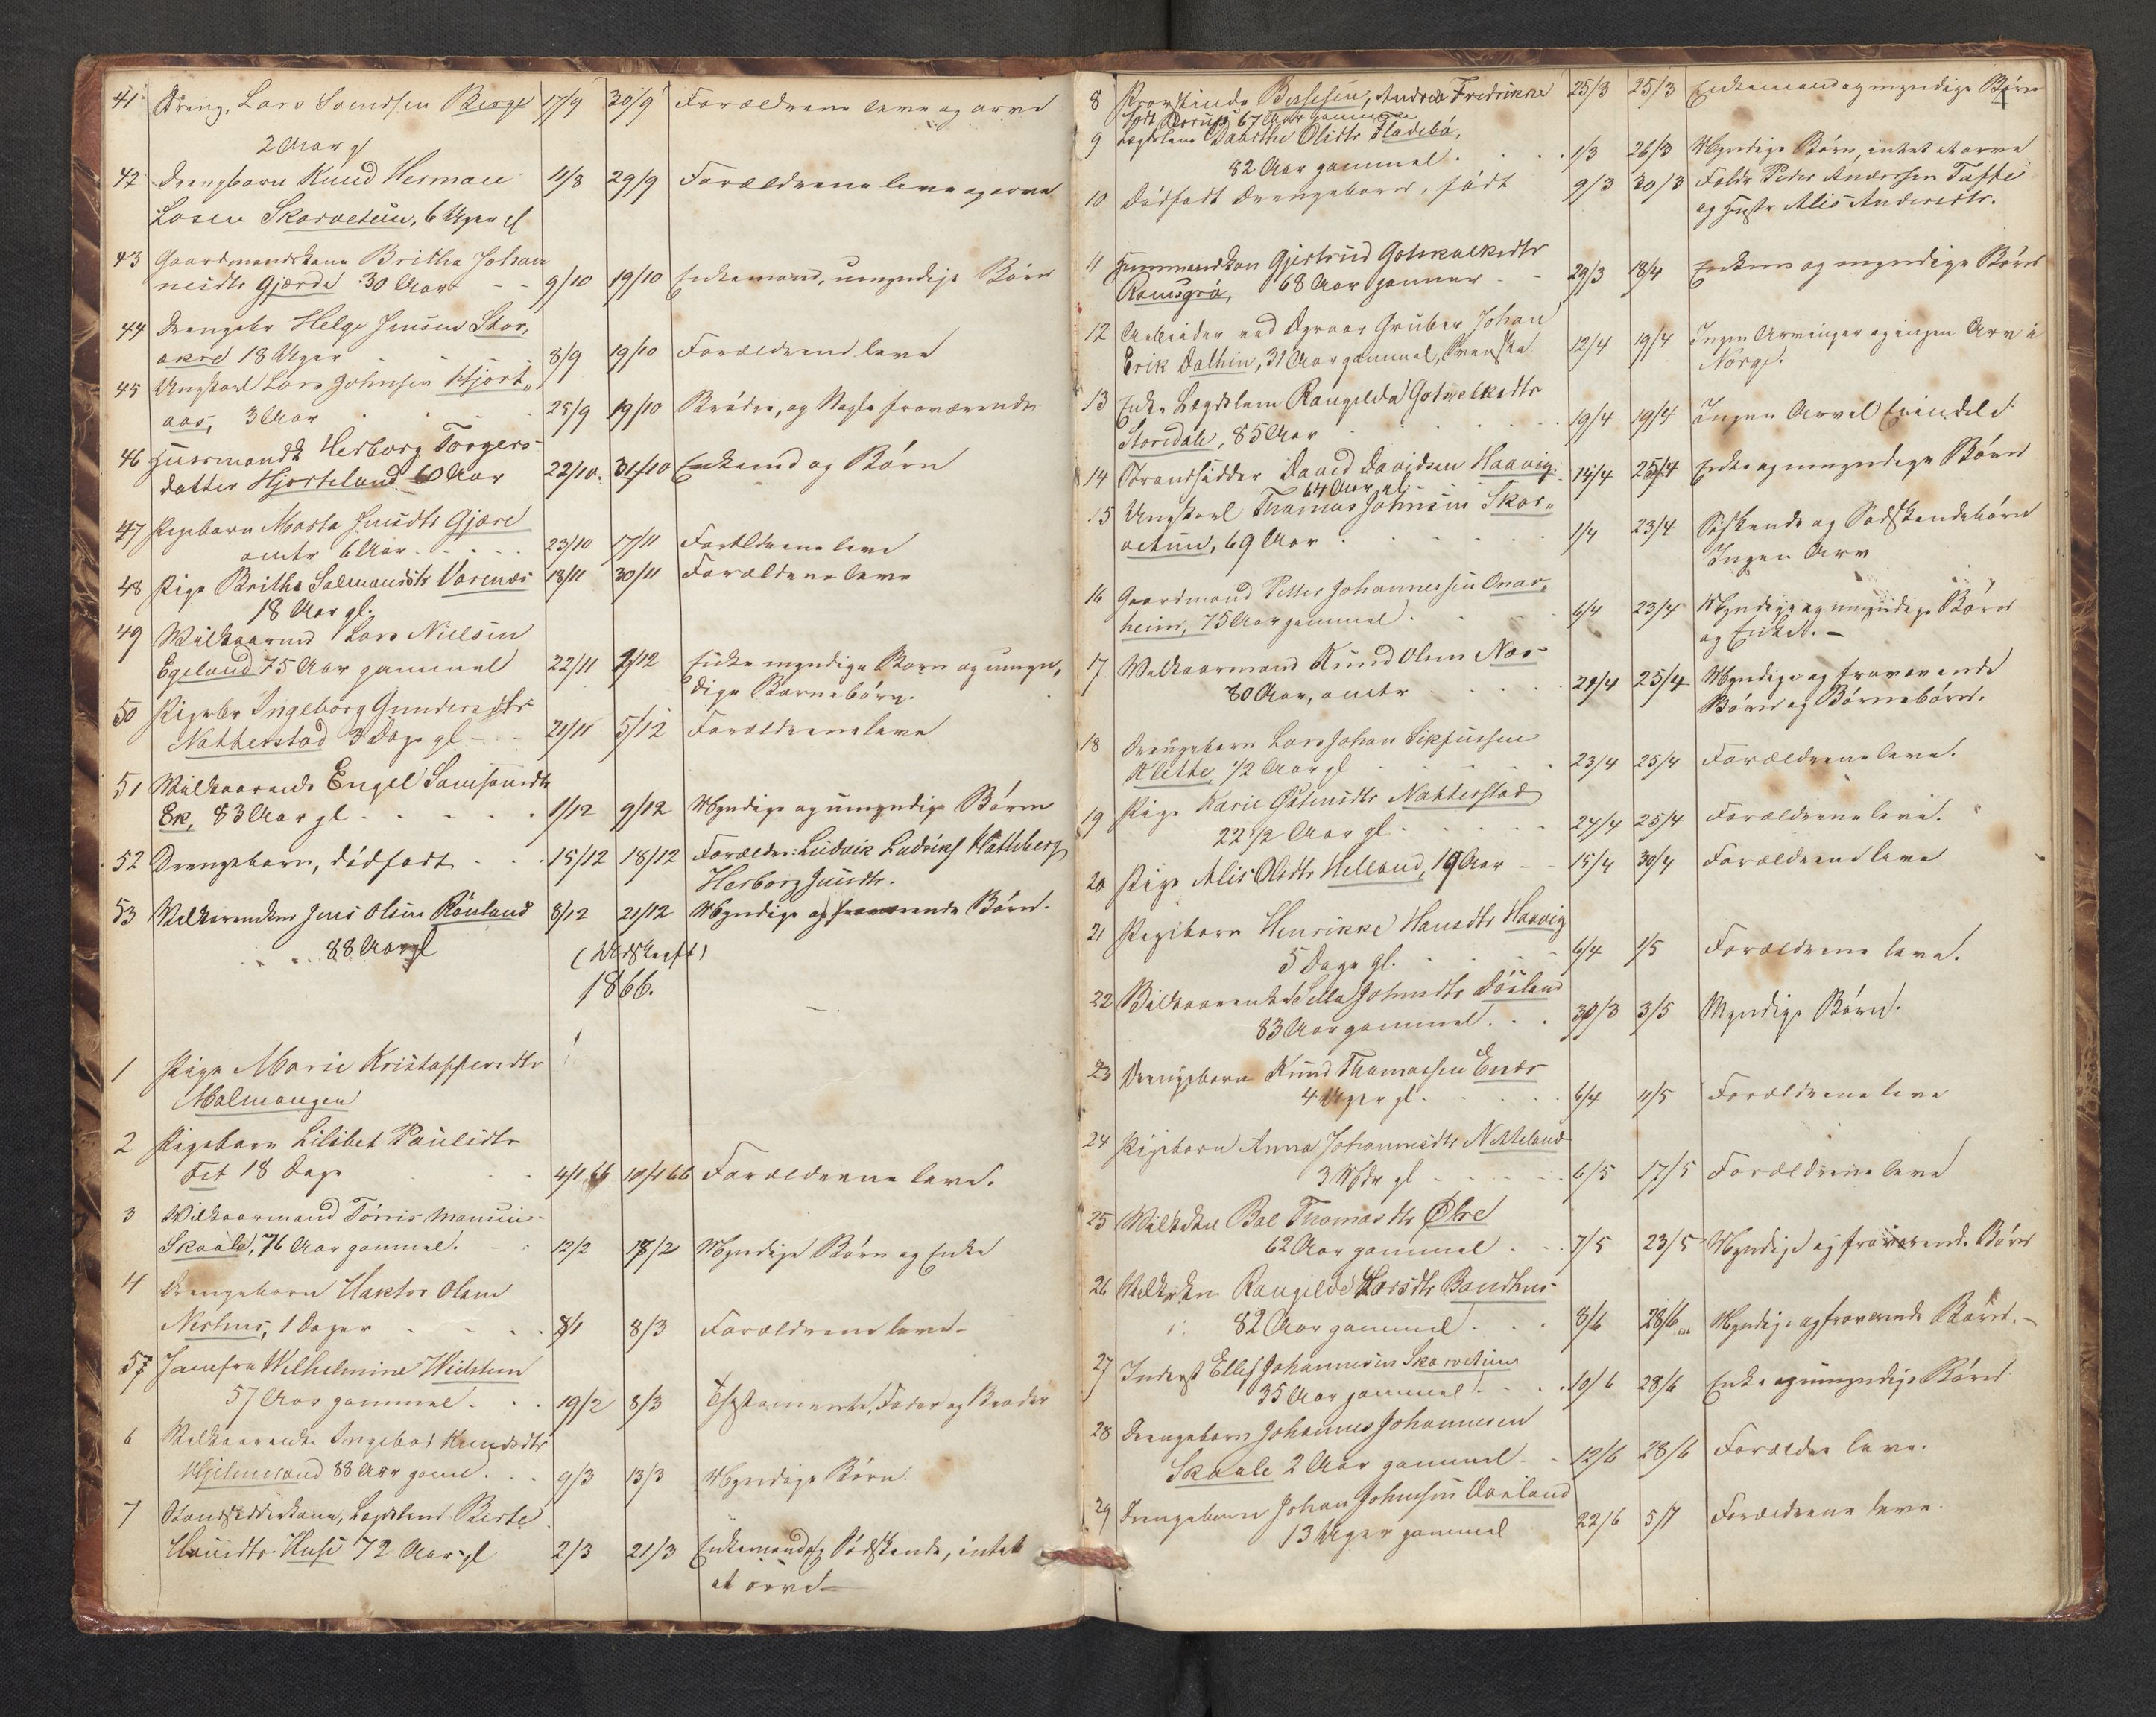 41 Dreng, Lars Svendsen Berge 17/9 30/9 Forældrene leve og arve
2 Aar gl
42 Drengbarn Knud Herman 11/8 29/9 Forældrene leve og arve
Losen Skarvetun, 6 Uger gl
43 Gaardmandskone Britha Johan
neidtr Gjerde 30 Aar - - 9/10 19/10 Enkemand, umyndige Børn
44 Drengebr Helge Jensen Stor,,
akre 18 Uger 8/9 19/10 Forældrene leve
45 Ungkarl Lars Johnsen Hjort,,
aas, 3 Aar 25/9 19/10 Brødre, og Nogle fraværende
46 Huusmandsk Herborg Torgers
datter Hjorteland 60 Aar 22/10. 31/10 Enkemd og Børn
47 Pigebarn Marta Jensdtr Gjære
omtr 6 Aar 23/10 17/11 Forældrene leve
48 Pige Britha Salmonsdtr Varenæs 18/11 30/11 Forældrene leve
18 Aar gl.
49 Wilkaarmd Lars Nielsen
Egeland 75 Aar gammel 22/11 1/12 Enke myndige Børn og umyn,
dige Børnebørn.
50 Pigebr Ingeborg Gundersdtr
Natherstad 3 Dage gl - - 21/11 5/12 Forældrene leve
51 Wilkaarenke Engel Samsonsdtr
Ek, 83 Aar gl 1/12 9/12 Myndige og umyndige Børn
52 Drengebarn, dødfødt 15/12 18/12 Forældre: Ludvik Ludriks Kathberg
Herborg Jensdtr.
53 Wilkaarenkem Jens Olsen Rønland 8/12 21/12 Myndige og fraværende Børn.
88 Aar gl
1866.
1 Pige Marie Kristoffersdtr
Malmangen
2 Pigebarn Lilibet Paulsdtr
Fet 18 Dage 4/1 66 10/1 66 Forældrene leve.
3 Wilkaarmand Tørris Monsen
Skaale, 76 Aar gammel. 12/2 18/2 Myndige Børn og Enke
4 Drengebarn Haktor Olsen
Neshus, 1 Dager 8/1 8/3 Forældrene leve.
5 Jomfru Wilhelmine Weidshen
57 Aar gammel. 19/2 8/3 Testamente, Fader og Broder
6 Wilkaarenke Ingebor Knudsdtr
Hjelmeland 88 Aar gaml. 9/3 13/3 Myndige Børn.
7 Strandsidderkone, Lægdslem Berte
Hansdtr. Huse 72 Aar gl 2/3 21/3 Enkemand og Sødskende, intet
at arve
8 Provstinde Bessesen, Andrea Fredrikke 25/3 25/3 Enkemand og myndige Børn
født 67 Aar gammel
9 Lægdslem Daarthe Olsdtr Fladebø,
82 Aar gammel. 1/3 26/3 Myndige Børn, intet at arve
10 Dødfødt Drengebarn, født 9/3 30/3 Foldr Peder Andersen Taffe
og Hustr Alis Andersdtr.
11 Huusmandskon Gjertrud Gotskalksdtr
Ramsgrø, 68 Aar gammel - - 29/3 18/4 Enkem og myndige Børn
12 Arbeider ved Gruber Johan
Erik Dalhin, 31 Aar gammel, Svenske 12/4 19/4 Ingen Arvinger og ingen Arv i
Norge.
13 Enke Lægdslem Rangilda Gotskalksdtr
Storedale, 85 Aar 19/4 19/4 Ingen Arvel
14 Strandsidder David Davidsen Haavig 14/4 25/4 Enke og umyndige Børn
64 Aar gl.
15 Ungkarl Thomas Johnsen Skar,,
vetun, 69 Aar 1/4 23/4 Søskende og Sødskendebørn
Ingen Arv
16 Gaardmand Petter Johannessen Onar,,
heim, 75 Aar gammel. 6/4 23/4 Myndige og umyndige Børn
og Enke. -
17 Wilkaarmand Knud Olsen Nes
80 Aar, omtr 21/4 25/4 Myndige og fraværende
Børn og Børnebørn.
18 Drengebarn Lars Johan Sikfussen
Klette, 1/2 Aar gl 23/4 25/4 Forældrene leve.
19 Pige Karie Østensdtr Natterstad
22 1/2 Aar gl. 24/4 25/4 Forældrene leve.
20 Pige Alis Olsdtr Helland, 19 Aar - - 15/4 30/4 Forældrene leve
21 Pigebarn Henrikke Hansdtr Haavig
5 Dage gl. 6/4 1/5 Forældrene leve.
22 Wilkaarenke Sella Johnsdtr Døsland
83 Aar gammel. 30/3 3/5 Myndige Børn.
23 Drengebarn Knud Thomassen Enes
4 Uger gl. 6/4 11/5 Forældrene leve
24 Pigebarn Anna Johannesdtr Netteland
3 Mdr gl 6/5 17/5 Forældrene leve
25 Wilkekne Boe Thomasdtr Øfre
62 Aar gammel 7/5 23/5 Myndige og fraværende Børn
26 Wilkekn Rangilde Larsdtr Bondhus
82 Aar gammel. 8/6 28/6 Myndige og fraværende Børn. -
27 Inderst Ellef Johannesen Skarvetun
35 Aar gammel. 10/6 28/6 Enke og umyndige Børn
28 Drengebarn Johannes Johannesen
Skaale 2 Aar gammel. - 12/6 28/6 Forældre leve.
29 Drengebarn Johan Johnsen Aarland
13 Uger gammel 22/6 5/7 Forældrene leve.